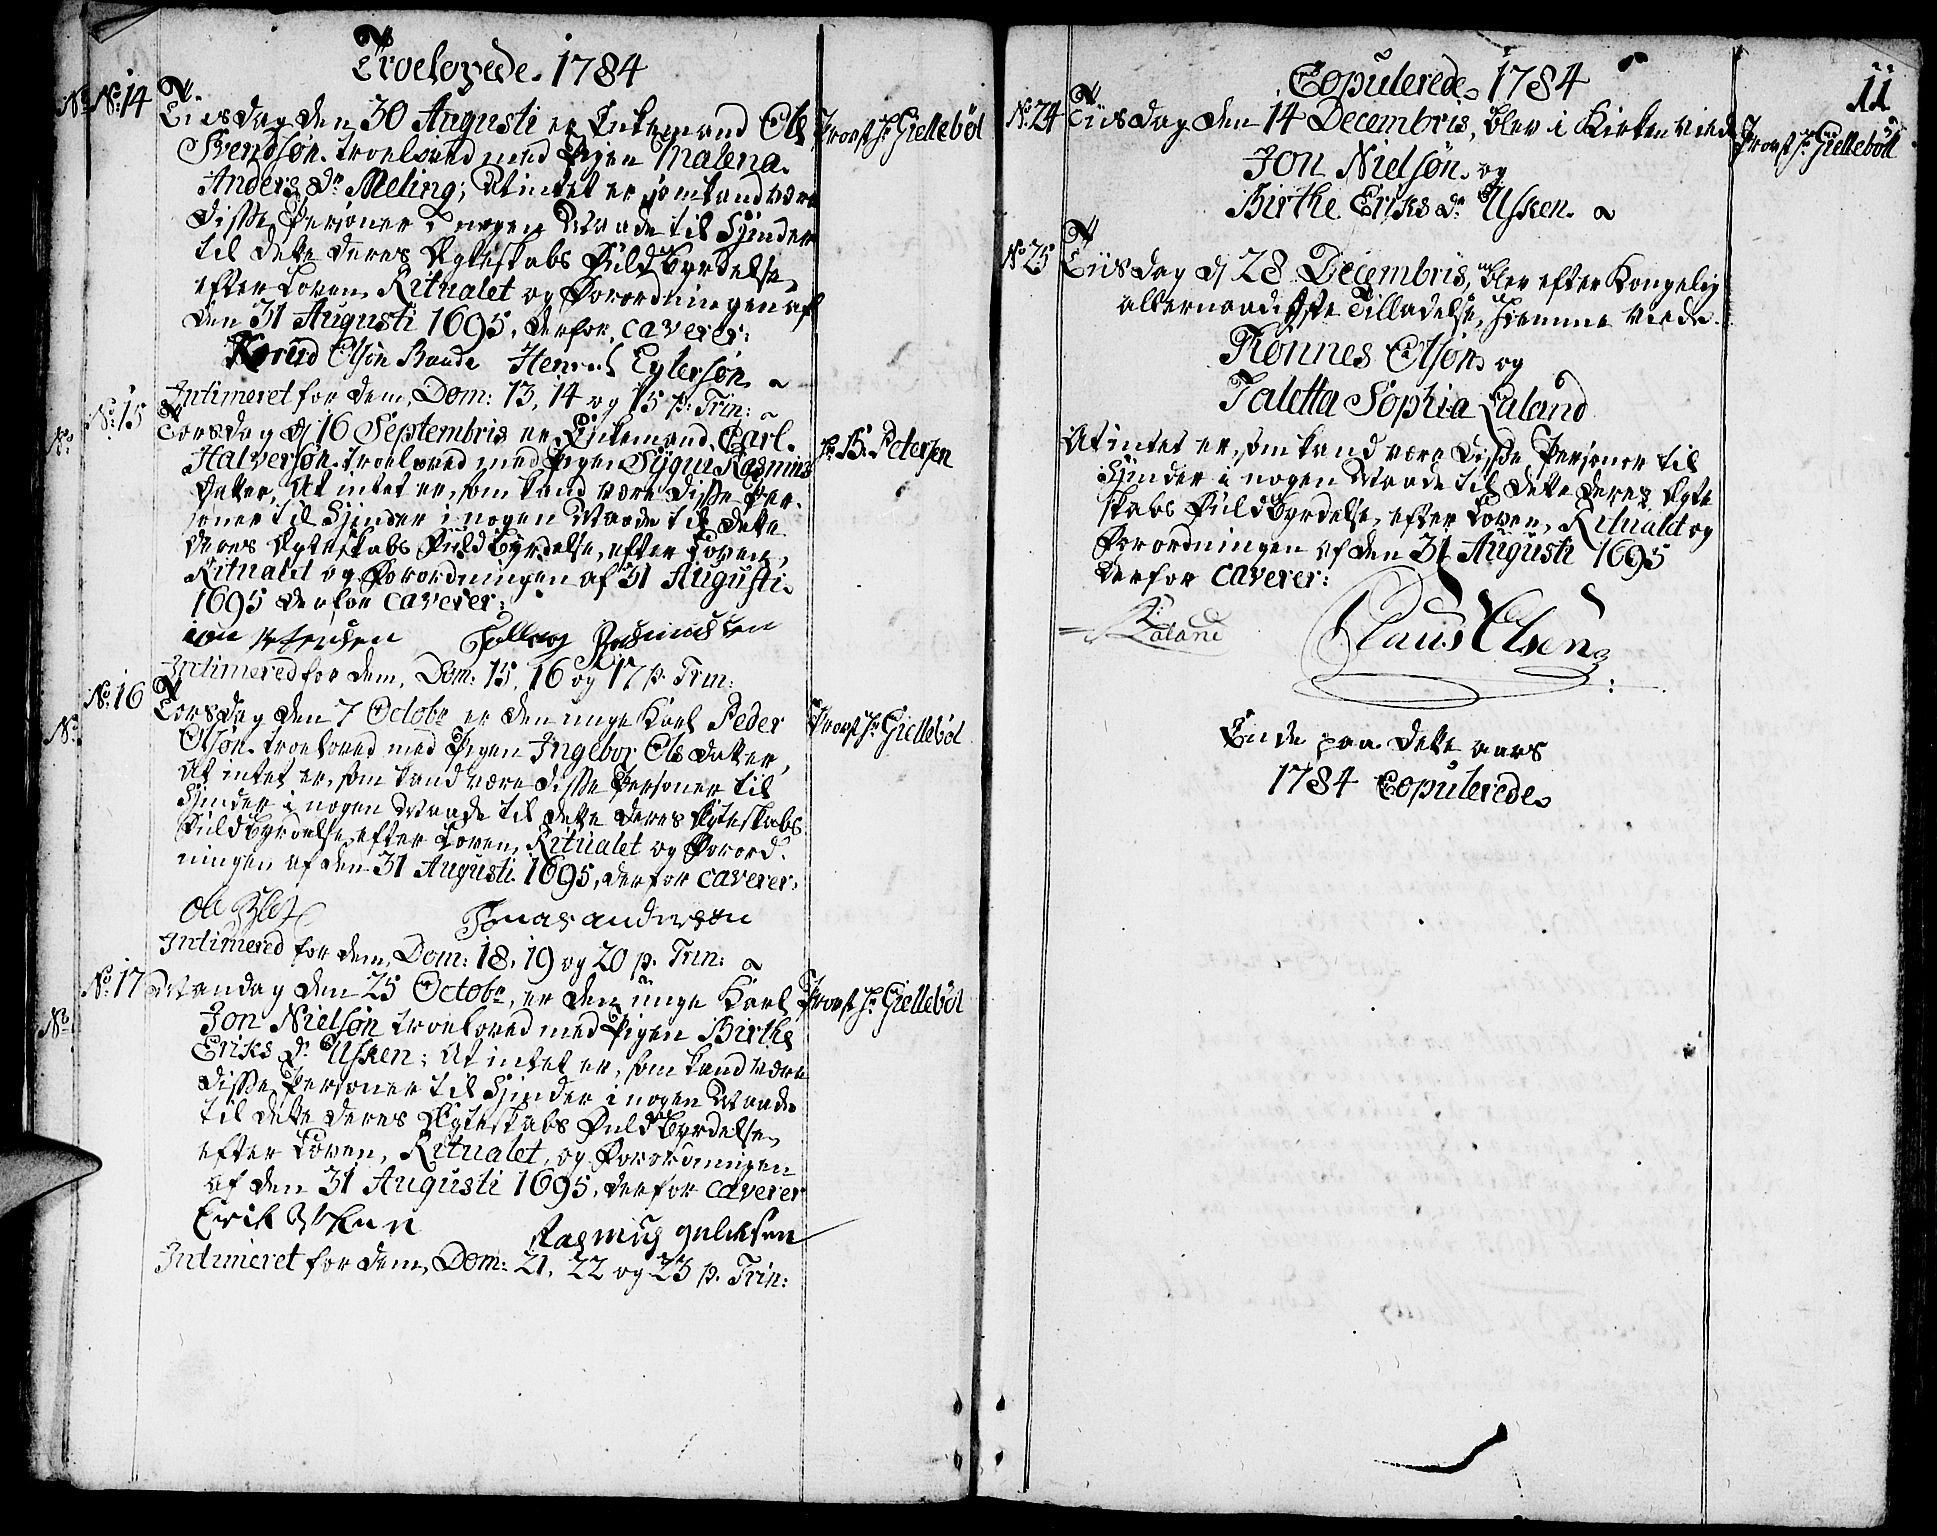 Troelovede. 1784
No: 14
Tiisdag den 30 Augusti er Enkemand Ole
Provst Hr Giellebøl
Svendsøn. troeloved med Pigen Malena.
Anders Dr Meling; At intet er som kand være
disse Persjoner i nogen Maade til Hinder
til dette deres Ægteskabs Fuldbyrdelse
efter Loven, Ritualet og Forordningen af
den 31 Augusti 1695, derfor, caverer:
Knud Olsøn Baade Henrich Eylersøn
Intimeret for dem, Dom: 13, 14 og 15 p: Trin:
No: 15
Torsdag d 16 Septembris er Enkemand Carl.
Hr B. Petersen
Halversøn. troeloved med Pigen Sygni Rasmus
Datter, At intet er, som kand være disse Per-
soner til Hinder i nogen Maade til dette
deres Ægteskabs Fuldbyrdelse, efter Loven,
Ritualet og Forordningen af 31 Augusti.
1695 derfor caverer:
Jensen Rasmussen
Intimered for dem, Dom: 15, 16 og 17 p. Trin:
No: 16
Torsdag den 7 Octobr er den unge Karl Peder
Provst Hr Giellebøl
Olsøn. troeloved med Pigen Ingebor Ols Datter,
At intet er, som kand være disse Personer til
Hinder i nogen Maade til dette deres Ægteskabs
Fuldbyrdelse, efter Loven, Ritualet og Forord-
ningen af den 31 Augusti 1695, derfor caverer:
Ole Jonas anderson
Intimered for dem, Dom: 18, 19 og 20 p. Trin:
No: 17
Mandag den 25 Octobr, er den unge Karl,
Provst Hr Giellebøl
Jon Nielsøn troeloved med Pigen Birthe
Eriks Dr Usken; At intet er, som kand være
disse Personer til Hinder i nogen Maade
til dette deres Ægteskabs Fuldbyrdelse,
efter Loven, Ritualet, og Forordningen
af den 31 Augusti 1695, derfor caverer
Erik Usken Rasmus
Intimeret for dem, Dom: 21, 22 og 23 p. Trin:
No:
No:
No:
No:
Copulerede. 1784
11
No: 24
Tiisdag den 14 Decembris, blev i Kirken viede
Provst Hr Giellebøll
Jon Nielsøn. og
Birthe Eriks Dr Usken.
No 25
Tiisdag d 28 Decembris, blev efter Kongelig
allernaadigste Tilladelse, hiemme viede.
Tønnes Olsøn og
Taletta Sophia Laland
At intet er, som kand være disse Persjoner til
Hinder i nogen Maade til dette deres Ægte
skabs Fuldbyrdelse, efter Loven, Ritualet og
Forordningen af den 31 Augusti 1695
derfor caverer:
Laland Claus Olsen
Ende paa dette aars
1784 Copulerede